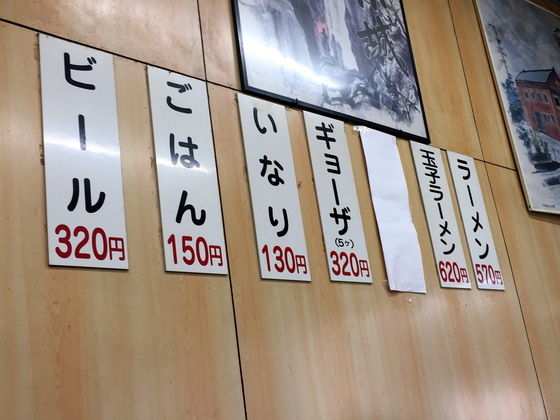 ラーメン
570円
玉子ラーメン
620円
ギョーザ
(5ヶ)
320円
いなり
130円
ごはん
150円
ビール
320円